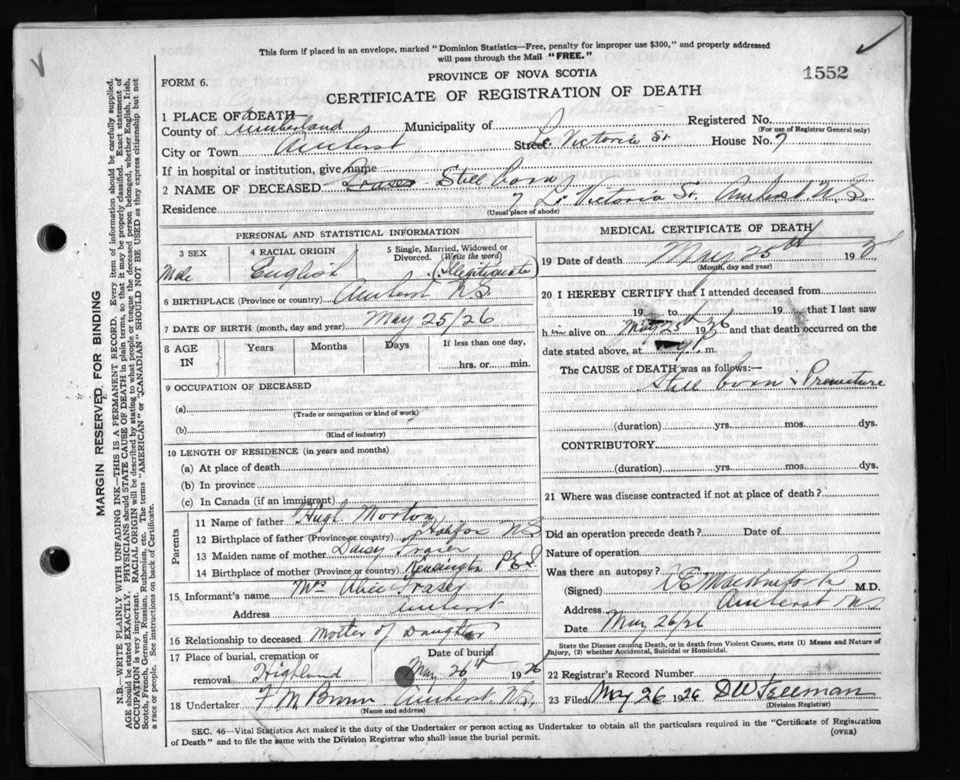 This form if placed in an envelope, marked "Dominion Statistics—Free, penalty for improper use $300," and properly addressed
will pass through the Mail "FREE."
PROVINCE OF NOVA SCOTIA
1552
FORM 6.
CERTIFICATE OF REGISTRATION OF DEATH
1 PLACE OF DEATH—
County of Cumberland Municipality of Registered No.
(For use of Registrar General only)
City or Town Amherst Street Victoria St House No. 7
If in hospital or institution, give name
2 NAME OF DECEASED Fraser Still born
Residence 7 Victoria St. Amherst N.S.
(Usual place of abode)
PERSONAL AND STATISTICAL INFORMATION
3 SEX Male
4 RACIAL ORIGIN English
5 Single, Married, Widowed or Divorced. (Write the word) Illegitimate
6 BIRTHPLACE (Province or country) Amherst NS
7 DATE OF BIRTH (month, day and year) May 25/26
8 AGE IN Years Months Days If less than one day,
hrs. or min.
9 OCCUPATION OF DECEASED
(a)
(Trade or occupation or kind of work)
(b)
(Kind of industry)
10 LENGTH OF RESIDENCE (in years and months)
(a) At place of death
(b) In province
(c) In Canada (if an immigrant)
Parents
11 Name of father Hugh Morton
12 Birthplace of father (Province or country) Halifax NS
13 Maiden name of mother Daisy Fraser
14 Birthplace of mother (Province or country) Kensington P E I.
15 Informant's name Mrs Alice Fraser
Address Amherst
16 Relationship to deceased Mother of Daughter
17 Place of burial, cremation or removal Highland Date of burial May 26th 1926
18 Undertaker F M Brown Amherst N.S.
(Name and address)
MEDICAL CERTIFICATE OF DEATH
19 Date of death May 25th 192
(Month, day and year)
20 I HEREBY CERTIFY that I attended deceased from
19 to 19 that I last saw
h alive on May 25th 1926 and that death occurred on the
date stated above, at m.
The CAUSE of DEATH was as follows:—
Still born & Premature
(duration) yrs. mos. dys.
CONTRIBUTORY.
(duration) yrs. mos. dys.
21 Where was disease contracted if not at place of death?
Did an operation precede death? Date of
Nature of operation
Was there an autopsy?
(Signed) M.D.
Address Amherst
Date May 26/26
State the Disease causing Death, or in death from Violent Causes, state (1) Means and Nature of
Injury, (2) whether Accidental, Suicidal or Homicidal.
22 Registrar's Record Number
23 Filed May 26 1926 D W Freeman
(Division Registrar)
SEC. 46—Vital Statistics Act makes it the duty of the Undertaker or person acting as Undertaker to obtain all the particulars required in the "Certificate of Registration
of Death" and to file the same with the Division Registrar who shall issue the burial permit.
(OVER)
MARGIN RESERVED FOR BINDING
N.B.—WRITE PLAINLY WITH UNFADING INK—THIS IS A PERMANENT RECORD. Every item of information should be carefully supplied.
AGE should be stated EXACTLY. PHYSICIANS should STATE CAUSE OF DEATH in plain terms, so that it may be properly classified. Exact statement of
OCCUPATION is very important. RACIAL ORIGIN will be described by stating to what people or tongue the deceased person belonged, whether English, Irish,
Scotch, French, German, Russian, Ruthenian, etc. The terms "AMERICAN" or "CANADIAN" SHOULD NOT BE USED as they express citizenship but not
a race or people. See instructions on back of Certificate.